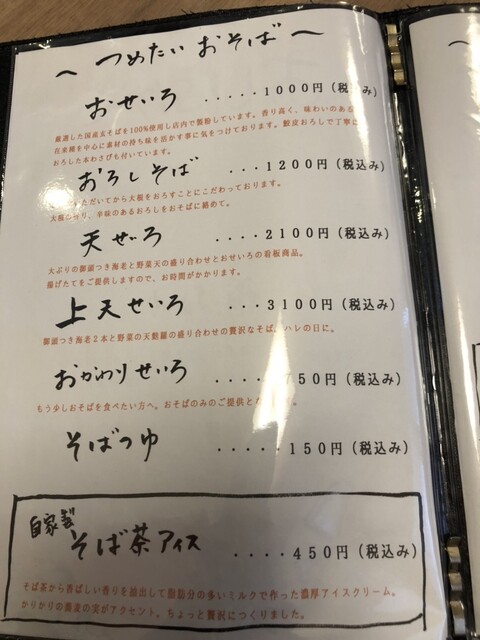 ～ つめたい おそば ～
おせいろ ．．．．．1000円（税込み）
厳選した国産玄そばを100%使用し店内で製粉しています。香り高く、味わいのある
在来種を中心に素材の持ち味を活かす事に気をつけております。鮫皮おろしで丁寧に
おろした本わさびも付いています。
おろしそば ．．．．1200円（税込み）
いただいてから大根をおろすことにこだわっております。
大根の香り、辛味のあるおろしをおそばに絡めて。
天せいろ ．．．．2100円（税込み）
大ぶりの御頭つき海老と野菜天の盛り合わせとおせいろの看板商品。
揚げたてをご提供しますので、お時間がかかります。
上天せいろ ．．．3100円（税込み）
御頭つき海老2本と野菜の天麩羅の盛り合わせの贅沢なそば。ハレの日に。
おかわりせいろ ．．．．．750円（税込み）
もう少しおそばを食べたい方へ。おそばのみのご提供と
そばつゆ ．．．．．150円（税込み）
自家製
そば茶アイス ．．．．450円（税込み）
そば茶から香ばしい香りを抽出して脂肪分の多いミルクで作った濃厚アイスクリーム。
かりかりの蕎麦の実がアクセント。ちょっと贅沢につくりました。